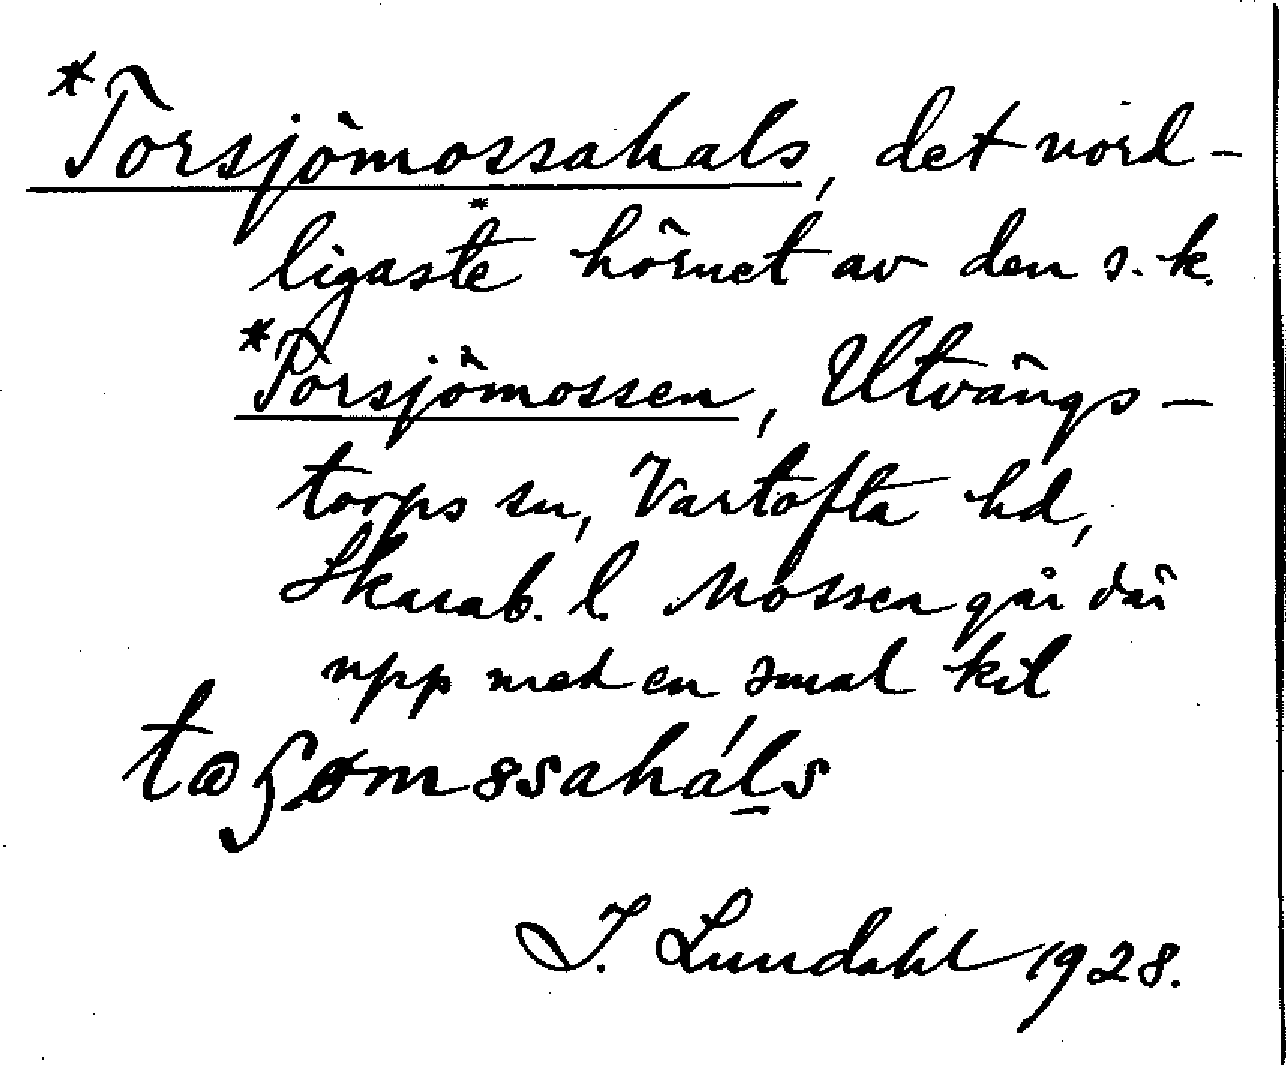 *Torsjömossahals, det nord-
ligaste hörnet av den s.k.
*Torsjömossen, Utvängs-
torps sn, Vartofta hd,
Skarab. l. Mossen går där
upp med en smal kil
J. Lundahl 1928.